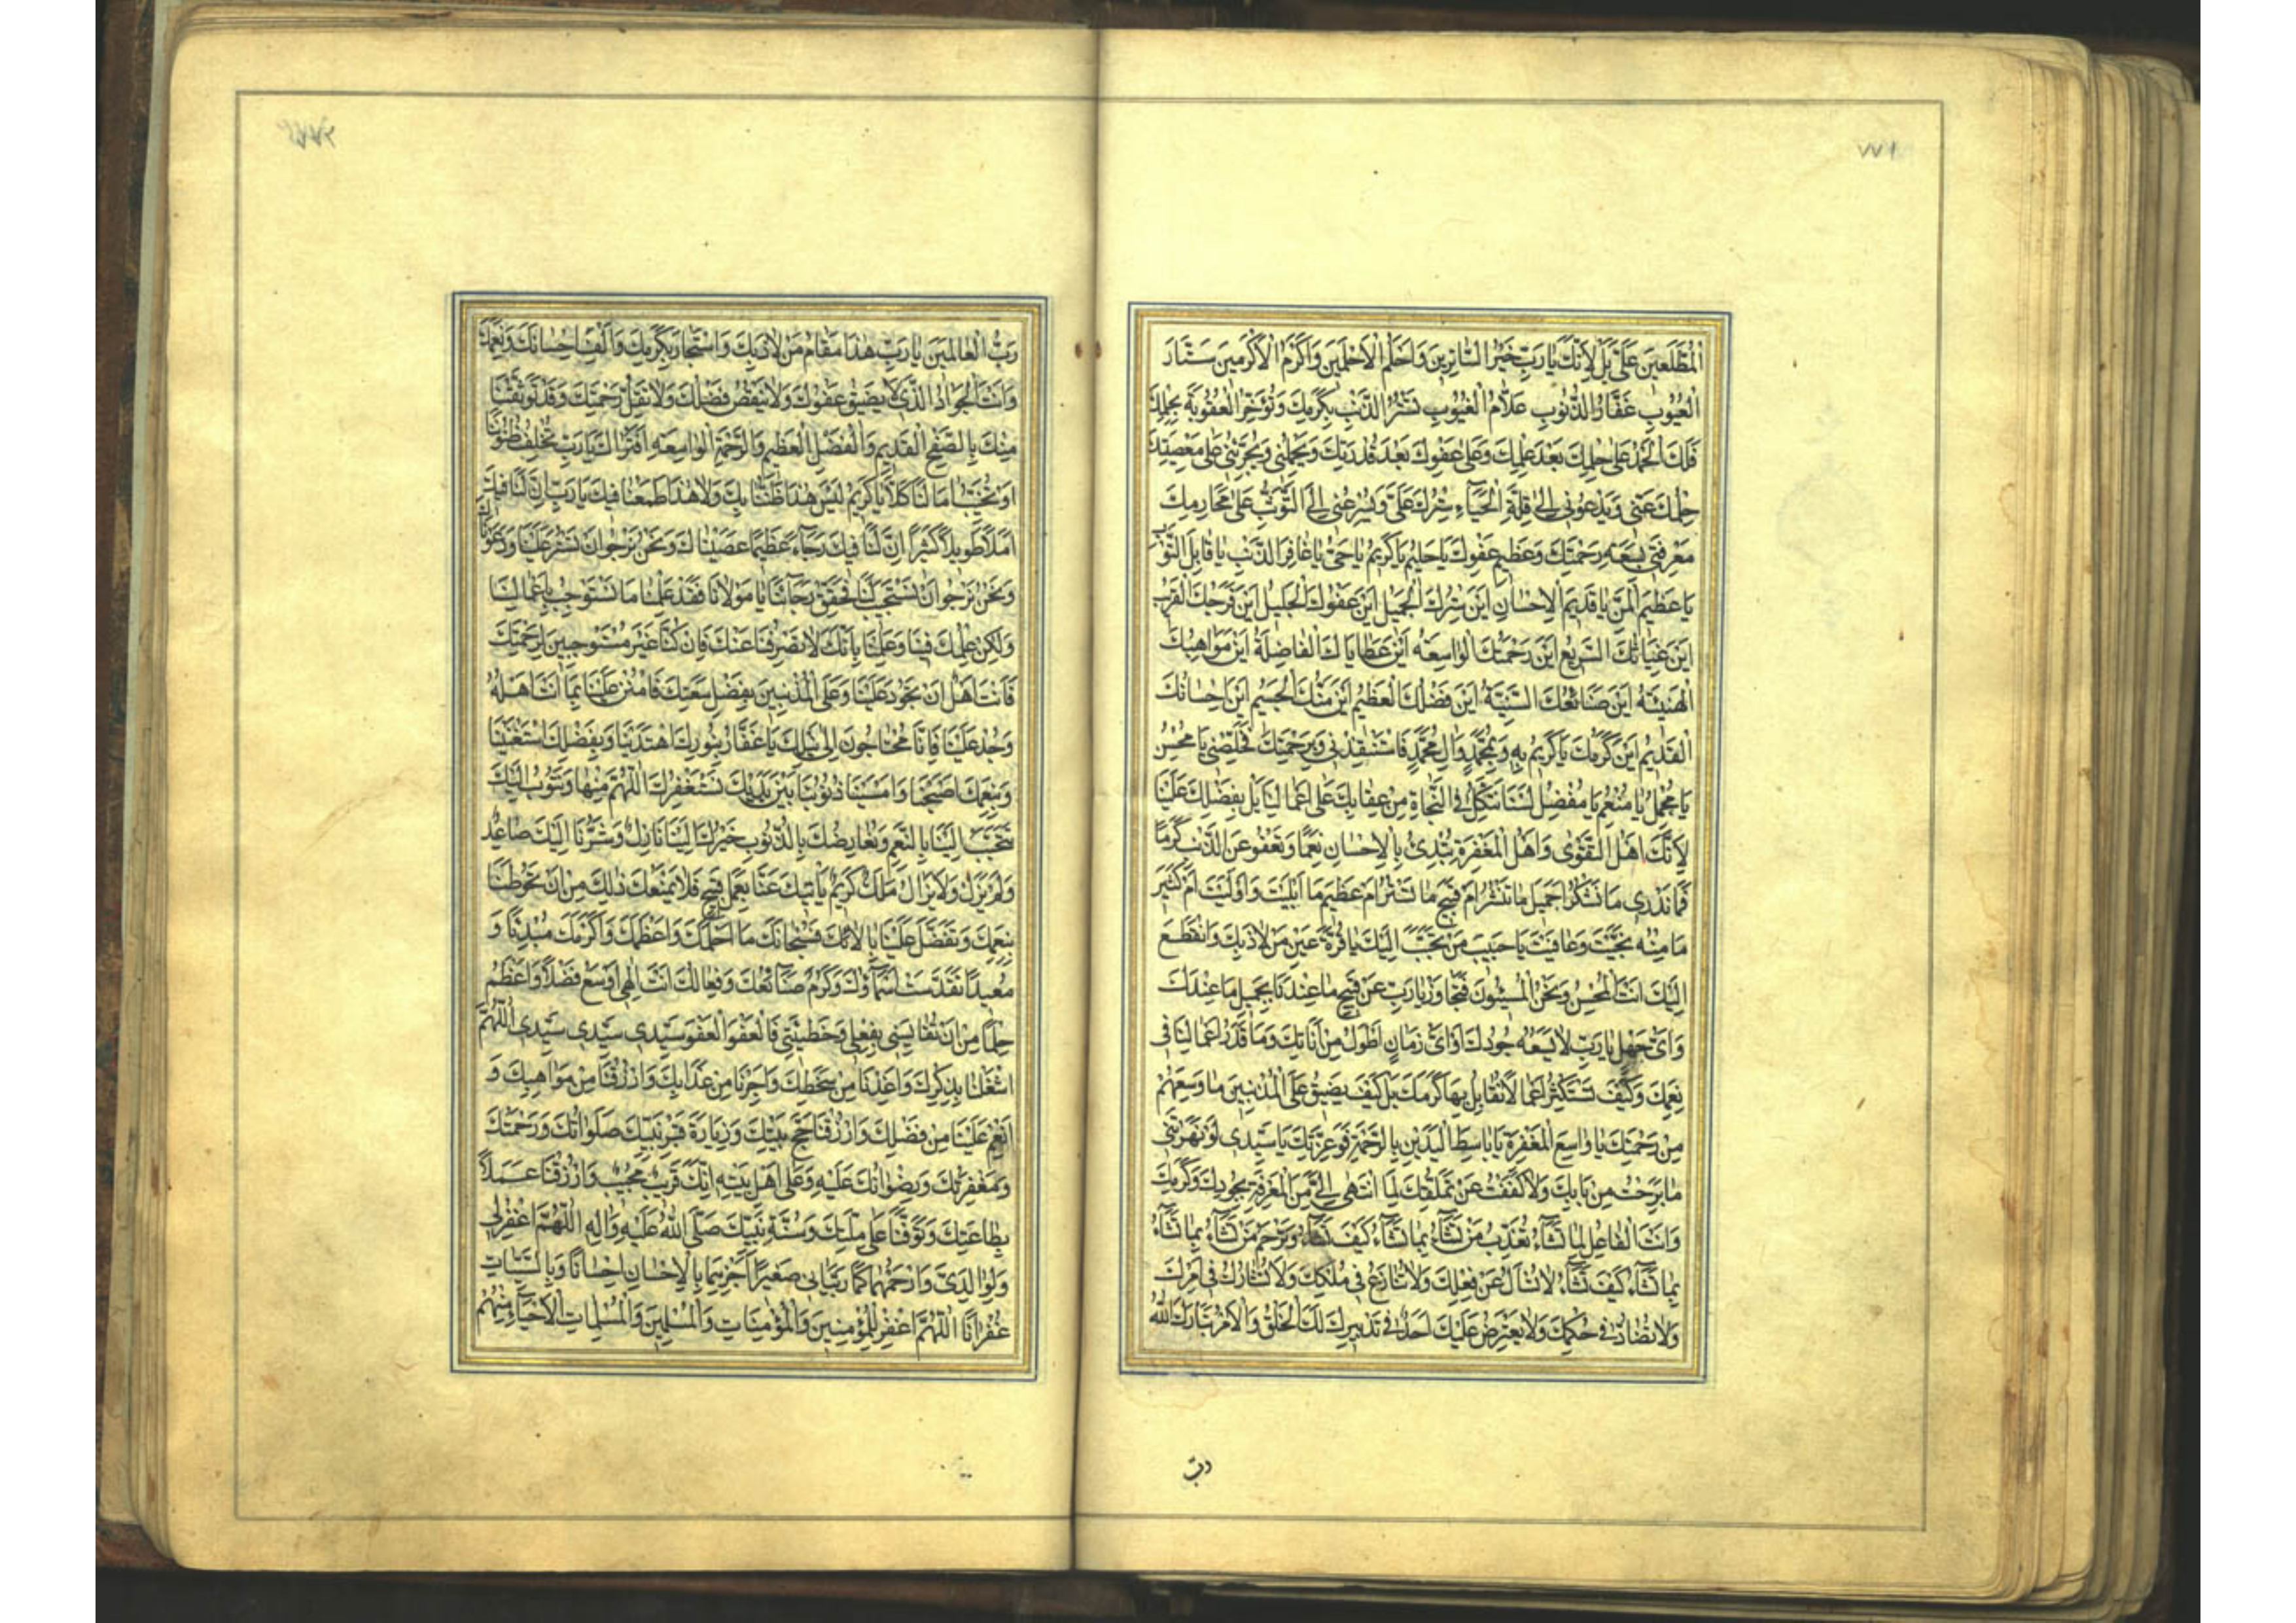 ٧٧١
الْمُطَّلِعِينَ عَلَيَّ بَلْ لِأَنَّكَ يَا رَبِّ خَيْرُ السَّاتِرِينَ وَاَحْلَمُ الْاَحْلَمِينَ وَاَكْرَمُ الْاَكْرَمِينَ سَتَّارُ
الْعُيُوبِ غَفَّارُ الذُّنُوبِ عَلَّامُ الْغُيُوبِ تَسْتُرُ الذَّنْبَ بِكَرَمِكَ وَتُؤَخِّرُ الْعُقُوبَةَ بِحِلْمِكَ
فَلَكَ الْحَمْدُ عَلَى حِلْمِكَ بَعْدَ عِلْمِكَ وَعَلَى عَفْوِكَ بَعْدَ قُدْرَتِكَ وَيَحْمِلُنِي وَيُجَرِّئُنِي عَلَى مَعْصِيَتِكَ
حِلْمُكَ عَنِّي وَيَدْعُونِي اِلَى قِلَّةِ الْحَيَاءِ سِتْرُكَ عَلَيَّ وَيُسْرِعُنِي اِلَى التَّوَثُّبِ عَلَى مَحَارِمِكَ
مَعْرِفَتِي بِسَعَةِ رَحْمَتِكَ وَعَظِيمِ عَفْوِكَ يَا حَلِيمُ يَا كَرِيمُ يَا حَيُّ يَا غَافِرَ الذَّنْبِ يَا قَابِلَ التَّوْبِ
يَا عَظِيمَ الْمَنِّ يَا قَدِيمَ الْاِحْسَانِ اَيْنَ سِتْرُكَ الْجَمِيلُ اَيْنَ عَفْوُكَ الْجَلِيلُ اَيْنَ فَرَجُكَ الْقَرِيبُ
اَيْنَ غِيَاثُكَ السَّرِيعُ اَيْنَ رَحْمَتُكَ الْوَاسِعَةُ اَيْنَ عَطَايَاكَ الْفَاضِلَةُ اَيْنَ مَوَاهِبُكَ
الْهَنِيئَةُ اَيْنَ صَنَائِعُكَ السَّنِيَّةُ اَيْنَ فَضْلُكَ الْعَظِيمُ اَيْنَ مَنُّكَ الْجَسِيمُ اَيْنَ اِحْسَانُكَ
الْقَدِيمُ اَيْنَ كَرَمُكَ يَا كَرِيمُ بِهِ وَبِمُحَمَّدٍ وَالِ مُحَمَّدٍ فَاسْتَنْقِذْنِي وَبِرَحْمَتِكَ فَخَلِّصْنِي يَا مُحْسِنُ
يَا مُجْمِلُ يَا مُنْعِمُ يَا مُفْضِلُ لَسْنَا نَتَّكِلُ فِي النَّجَاةِ مِنْ عِقَابِكَ عَلَى اَعْمَالِنَا بَلْ بِفَضْلِكَ عَلَيْنَا
لِاَنَّكَ اَهْلُ التَّقْوَى وَاَهْلُ الْمَغْفِرَةِ تُبْدِئُ بِالْاِحْسَانِ نِعَمًا وَتَعْفُو عَنِ الذَّنْبِ كَرَمًا
فَمَا نَدْرِي مَا نَشْكُرُ اَجَمِيلَ مَا تَنْشُرُ اَمْ قَبِيحَ مَا تَسْتُرُ اَمْ عَظِيمَ مَا اَبْلَيْتَ وَاَوْلَيْتَ اَمْ كَثِيرَ
مَا مِنْهُ نَجَّيْتَ وَعَافَيْتَ يَا حَبِيبَ مَنْ تَحَبَّبَ اِلَيْكَ يَا قُرَّةَ عَيْنِ مَنْ لَاذَ بِكَ وَانْقَطَعَ
اِلَيْكَ اَنْتَ الْمُحْسِنُ وَنَحْنُ الْمُسِيئُونَ فَتَجَاوَزْ يَا رَبِّ عَنْ قَبِيحِ مَا عِنْدَنَا بِجَمِيلِ مَا عِنْدَكَ
وَاَيُّ جَهْلٍ يَا رَبِّ لَا يَسَعُهُ جُودُكَ اَوْ اَيُّ زَمَانٍ اَطْوَلُ مِنْ اَنَاتِكَ وَمَا قَدْرُ اَعْمَالِنَا فِي
نِعَمِكَ وَكَيْفَ نَسْتَكْثِرُ اَعْمَالًا نُقَابِلُ بِهَا كَرَمَكَ بَلْ كَيْفَ يَضِيقُ عَلَى الْمُذْنِبِينَ مَا وَسِعَهُمْ
مِنْ رَحْمَتِكَ يَا وَاسِعَ الْمَغْفِرَةِ يَا بَاسِطَ الْيَدَيْنِ بِالرَّحْمَةِ فَوَعِزَّتِكَ يَا سَيِّدِي لَوْ نَهَرْتَنِي
مَا بَرِحْتُ مِنْ بَابِكَ وَلَا كَفَفْتُ عَنْ تَمَلُّقِكَ لِمَا انْتَهَى اِلَيَّ مِنَ الْمَعْرِفَةِ بِجُودِكَ وَكَرَمِكَ
وَاَنْتَ الْفَاعِلُ لِمَا تَشَاءُ تُعَذِّبُ مَنْ تَشَاءُ بِمَا تَشَاءُ كَيْفَ تَشَاءُ وَتَرْحَمُ مَنْ تَشَاءُ بِمَا تَشَاءُ
بِمَا تَشَاءُ كَيْفَ تَشَاءُ لَا تُسْاَلُ عَنْ فِعْلِكَ وَلَا تُنَازَعُ فِي مُلْكِكَ وَلَا تُشَارَكُ فِي اَمْرِكَ
وَلَا تُضَادُّ فِي حُكْمِكَ وَلَا يَعْتَرِضُ عَلَيْكَ اَحَدٌ فِي تَدْبِيرِكَ لَكَ الْخَلْقُ وَالْاَمْرُ تَبَارَكَ اللّٰهُ
رب
رَبُّ الْعَالَمِينَ يَا رَبِّ هَذَا مَقَامُ مَنْ لَاذَ بِكَ وَاسْتَجَارَ بِكَرَمِكَ وَاَلِفَ اِحْسَانَكَ وَنِعَمَكَ
وَاَنْتَ الْجَوَادُ الَّذِي لَا يَضِيقُ عَفْوُكَ وَلَا يَنْقُصُ فَضْلُكَ وَلَا تَقِلُّ رَحْمَتُكَ وَقَدْ تَوَثَّقْنَا
مِنْكَ بِالصَّفْحِ الْقَدِيمِ وَالْفَضْلِ الْعَظِيمِ وَالرَّحْمَةِ الْوَاسِعَةِ اَفَتُرَاكَ يَا رَبِّ تُخْلِفُ ظُنُونَنَا
اَوْ تُخَيِّبُ اٰمَالَنَا كَلَّا يَا كَرِيمُ لَيْسَ هَذَا ظَنُّنَا بِكَ وَلَا هَذَا طَمَعُنَا فِيكَ يَا رَبِّ اِنَّ لَنَا فِيكَ
اَمَلًا طَوِيلًا كَثِيرًا اِنَّ لَنَا فِيكَ رَجَاءً عَظِيمًا عَصَيْنَاكَ وَنَحْنُ نَرْجُو اَنْ تَسْتُرَ عَلَيْنَا وَدَعَوْنَاكَ
وَنَحْنُ نَرْجُو اَنْ تَسْتَجِيبَ لَنَا فَحَقِّقْ رَجَاءَنَا يَا مَوْلَانَا فَقَدْ عَلِمْنَا مَا نَسْتَوْجِبُ بِاَعْمَالِنَا
وَلَكِنْ عِلْمُكَ فِينَا وَعِلْمُنَا بِاَنَّكَ لَا تَصْرِفُنَا عَنْكَ فَاِنْ كُنَّا غَيْرَ مُسْتَوْجِبِينَ لِرَحْمَتِكَ
فَاَنْتَ اَهْلٌ اَنْ تَجُودَ عَلَيْنَا وَعَلَى الْمُذْنِبِينَ بِفَضْلِ سَعَتِكَ فَامْنُنْ عَلَيْنَا بِمَا اَنْتَ اَهْلُهُ
وَجُدْ عَلَيْنَا فَاِنَّا مُحْتَاجُونَ اِلَى نَيْلِكَ يَا غَفَّارُ بِنُورِكَ اهْتَدَيْنَا وَبِفَضْلِكَ اسْتَغْنَيْنَا
وَبِنِعْمَتِكَ اَصْبَحْنَا وَاَمْسَيْنَا ذُنُوبُنَا بَيْنَ يَدَيْكَ نَسْتَغْفِرُكَ اَللّٰهُمَّ مِنْهَا وَنَتُوبُ اِلَيْكَ
تَتَحَبَّبُ اِلَيْنَا بِالنِّعَمِ وَنُعَارِضُكَ بِالذُّنُوبِ خَيْرُكَ اِلَيْنَا نَازِلٌ وَشَرُّنَا اِلَيْكَ صَاعِدٌ
وَلَمْ يَزَلْ وَلَا يَزَالُ مَلَكٌ كَرِيمٌ يَاْتِيكَ عَنَّا بِعَمَلٍ قَبِيحٍ فَلَا يَمْنَعُكَ ذٰلِكَ مِنْ اَنْ تَحُوطَنَا
بِنِعَمِكَ وَتَفَضَّلَ عَلَيْنَا بِاٰلَائِكَ فَسُبْحَانَكَ مَا اَحْلَمَكَ وَاَعْظَمَكَ وَاَكْرَمَكَ مُبْدِئًا وَ
مُعِيدًا تَقَدَّسَتْ اَسْمَاؤُكَ وَكَرُمَ صَنَائِعُكَ وَفِعَالُكَ اَنْتَ اِلٰهِي اَوْسَعُ فَضْلًا وَاَعْظَمُ
حِلْمًا مِنْ اَنْ تُقَايِسَنِي بِفِعْلِي وَخَطِيئَتِي فَالْعَفْوَ الْعَفْوَ سَيِّدِي سَيِّدِي سَيِّدِي اَللّٰهُمَّ
اشْغَلْنَا بِذِكْرِكَ وَاَعِذْنَا مِنْ سَخَطِكَ وَاَجِرْنَا مِنْ عَذَابِكَ وَارْزُقْنَا مِنْ مَوَاهِبِكَ وَ
اَنْعِمْ عَلَيْنَا مِنْ فَضْلِكَ وَارْزُقْنَا حَجَّ بَيْتِكَ وَزِيَارَةَ قَبْرِ نَبِيِّكَ صَلَوَاتُكَ وَرَحْمَتُكَ
وَمَغْفِرَتُكَ وَرِضْوَانُكَ عَلَيْهِ وَعَلَى اَهْلِ بَيْتِهِ اِنَّكَ قَرِيبٌ مُجِيبٌ وَارْزُقْنَا عَمَلًا
بِطَاعَتِكَ وَتَوَفَّنَا عَلَى مِلَّتِكَ وَسُنَّةِ نَبِيِّكَ صَلَّى اللّٰهُ عَلَيْهِ وَاٰلِهِ اَللّٰهُمَّ اغْفِرْ لِي
وَلِوَالِدَيَّ وَارْحَمْهُمَا كَمَا رَبَّيَانِي صَغِيرًا اِجْزِهِمَا بِالْاِحْسَانِ اِحْسَانًا وَبِالسَّيِّئَاتِ
غُفْرَانًا اَللّٰهُمَّ اغْفِرْ لِلْمُؤْمِنِينَ وَالْمُؤْمِنَاتِ وَالْمُسْلِمِينَ وَالْمُسْلِمَاتِ الْاَحْيَاءِ مِنْهُمْ